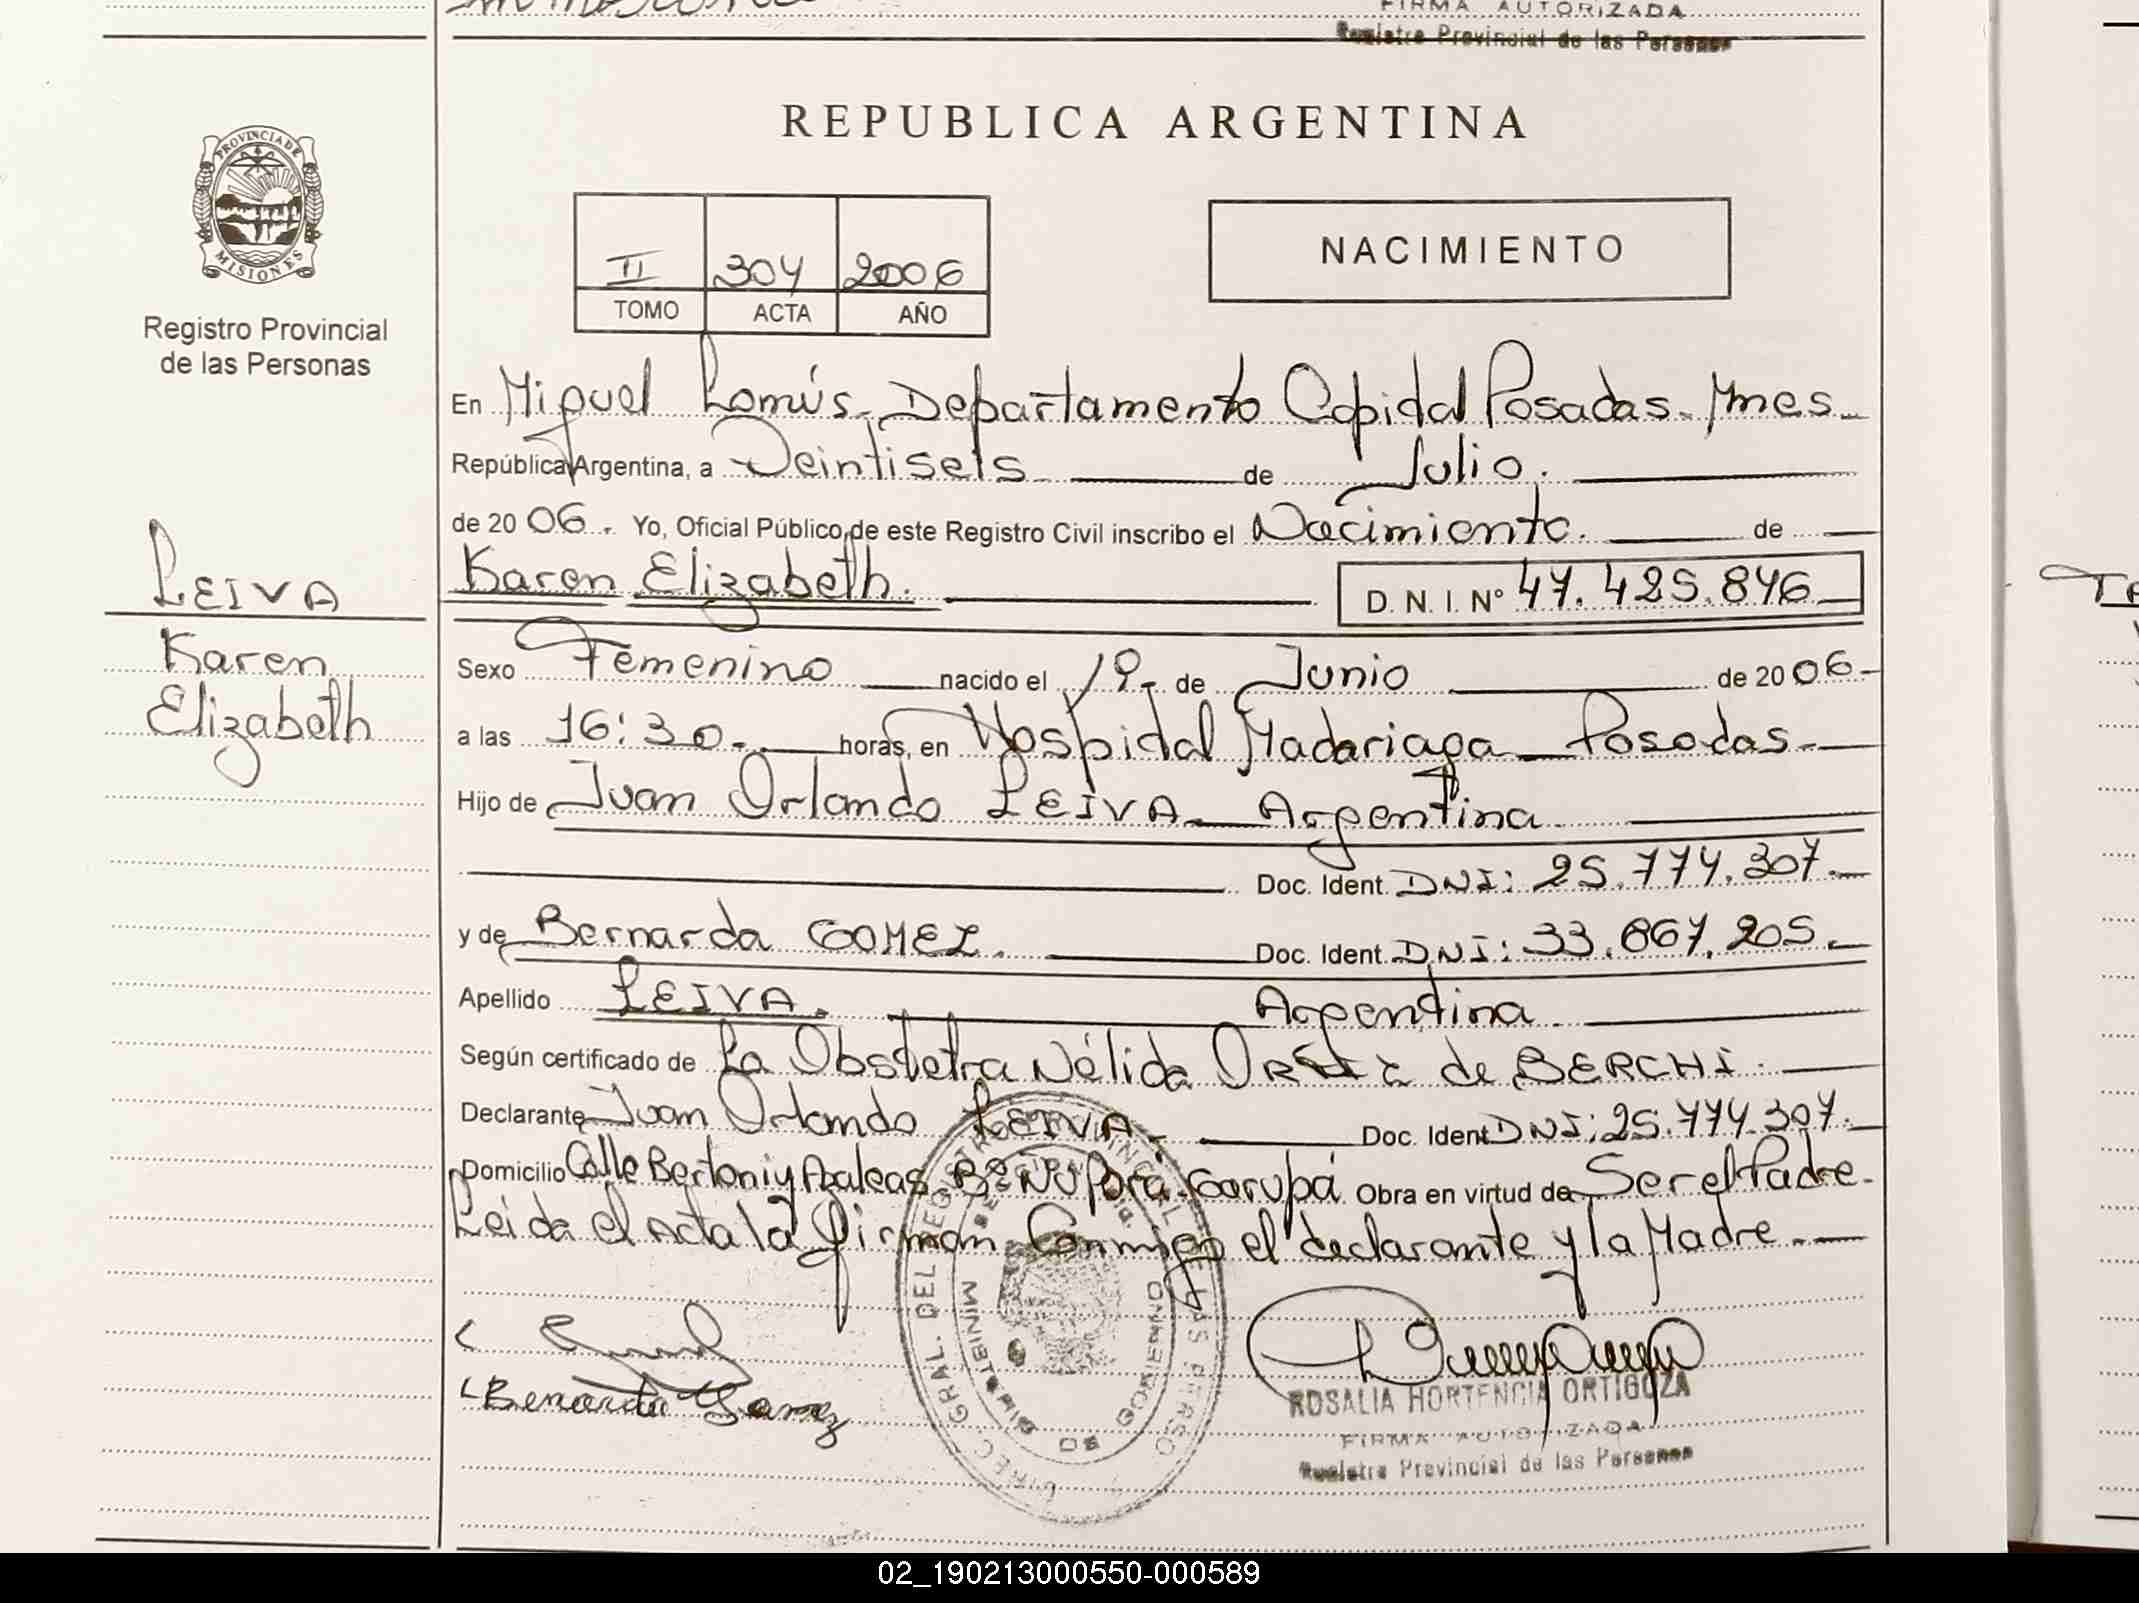 FIRMA AUTORIZADA
Registro Provincial de las Personas
PROVINCIA DE
MISIONES
Registro Provincial
de las Personas
LEIVA
Karen
Elizabeth
REPUBLICA ARGENTINA
II 304 2006
TOMO ACTA AÑO
NACIMIENTO
En Miguel Lanús - Departamento Capital Posadas - Mnes
República Argentina, a Veintiseis de Julio.
de 2006. Yo, Oficial Público de este Registro Civil inscribo el Nacimiento. de
Karen Elizabeth. D. N. I. Nº 47.425.846
Sexo Femenino nacido el 19 - de Junio de 2006 -
a las 16:30 - horas, en Hospital Madariaga - Posadas -
Hijo de Juan Orlando LEIVA - Argentina
Doc. Ident. DNI: 25.774.307.
y de Bernarda GOMEZ. Doc. Ident. DNI: 33.867.205.
Apellido LEIVA. Argentina
Según certificado de La Obstetra Nélida de BERCHI.
Declarante Juan Orlando LEIVA - Doc. Ident DNI: 25.774.307.
Domicilio Calle Bertoni y Azaleas Bº Ñu Porá - Garupá Obra en virtud de Ser el Padre.
Leida el Acta la firman Conmigo el declarante y la Madre -
Bernarda Gomez
ROSALIA HORTENCIA ORTIGOZA
FIRMA AUTORIZADA
Registro Provincial de las Personas
DIREC. GRAL. DEL REGISTRO PROVINCIAL DE LAS PERSO
MINISTERIO DE GOBIERNO
02_190213000550-000589